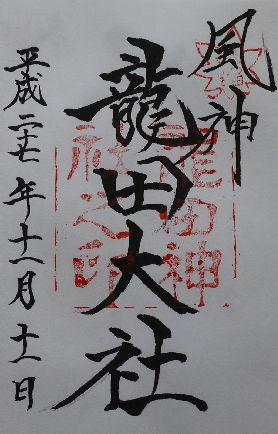 風神
龍田大社
龍田神
社之印
平成二十七年十一月十一日